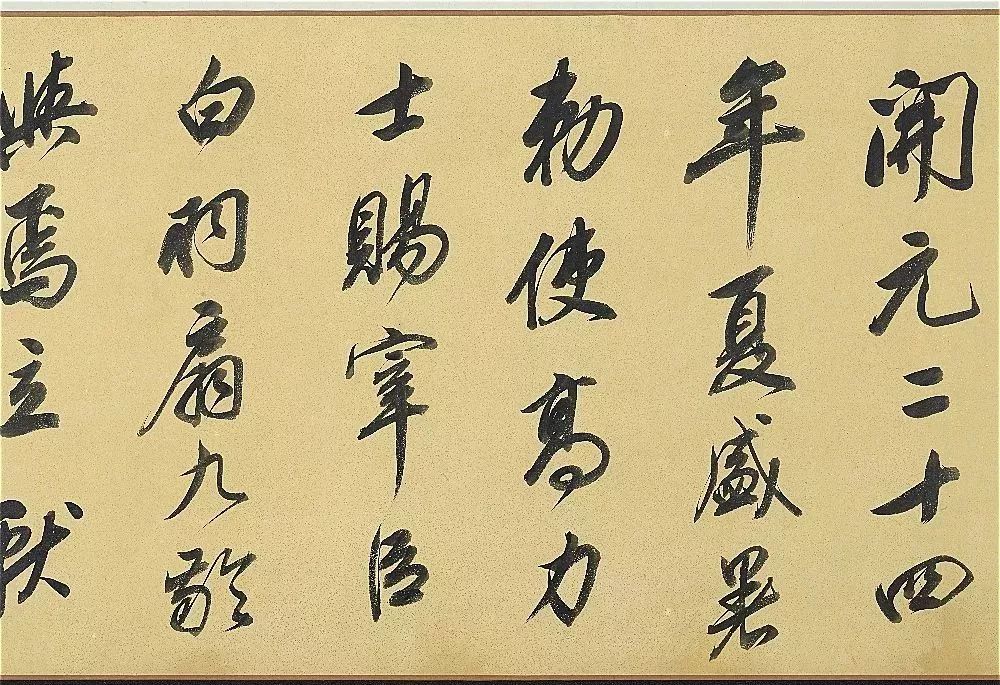 開元二十四
年夏盛暑
勑使髙力
士賜宰臣
白羽扇九齡
與焉立獻